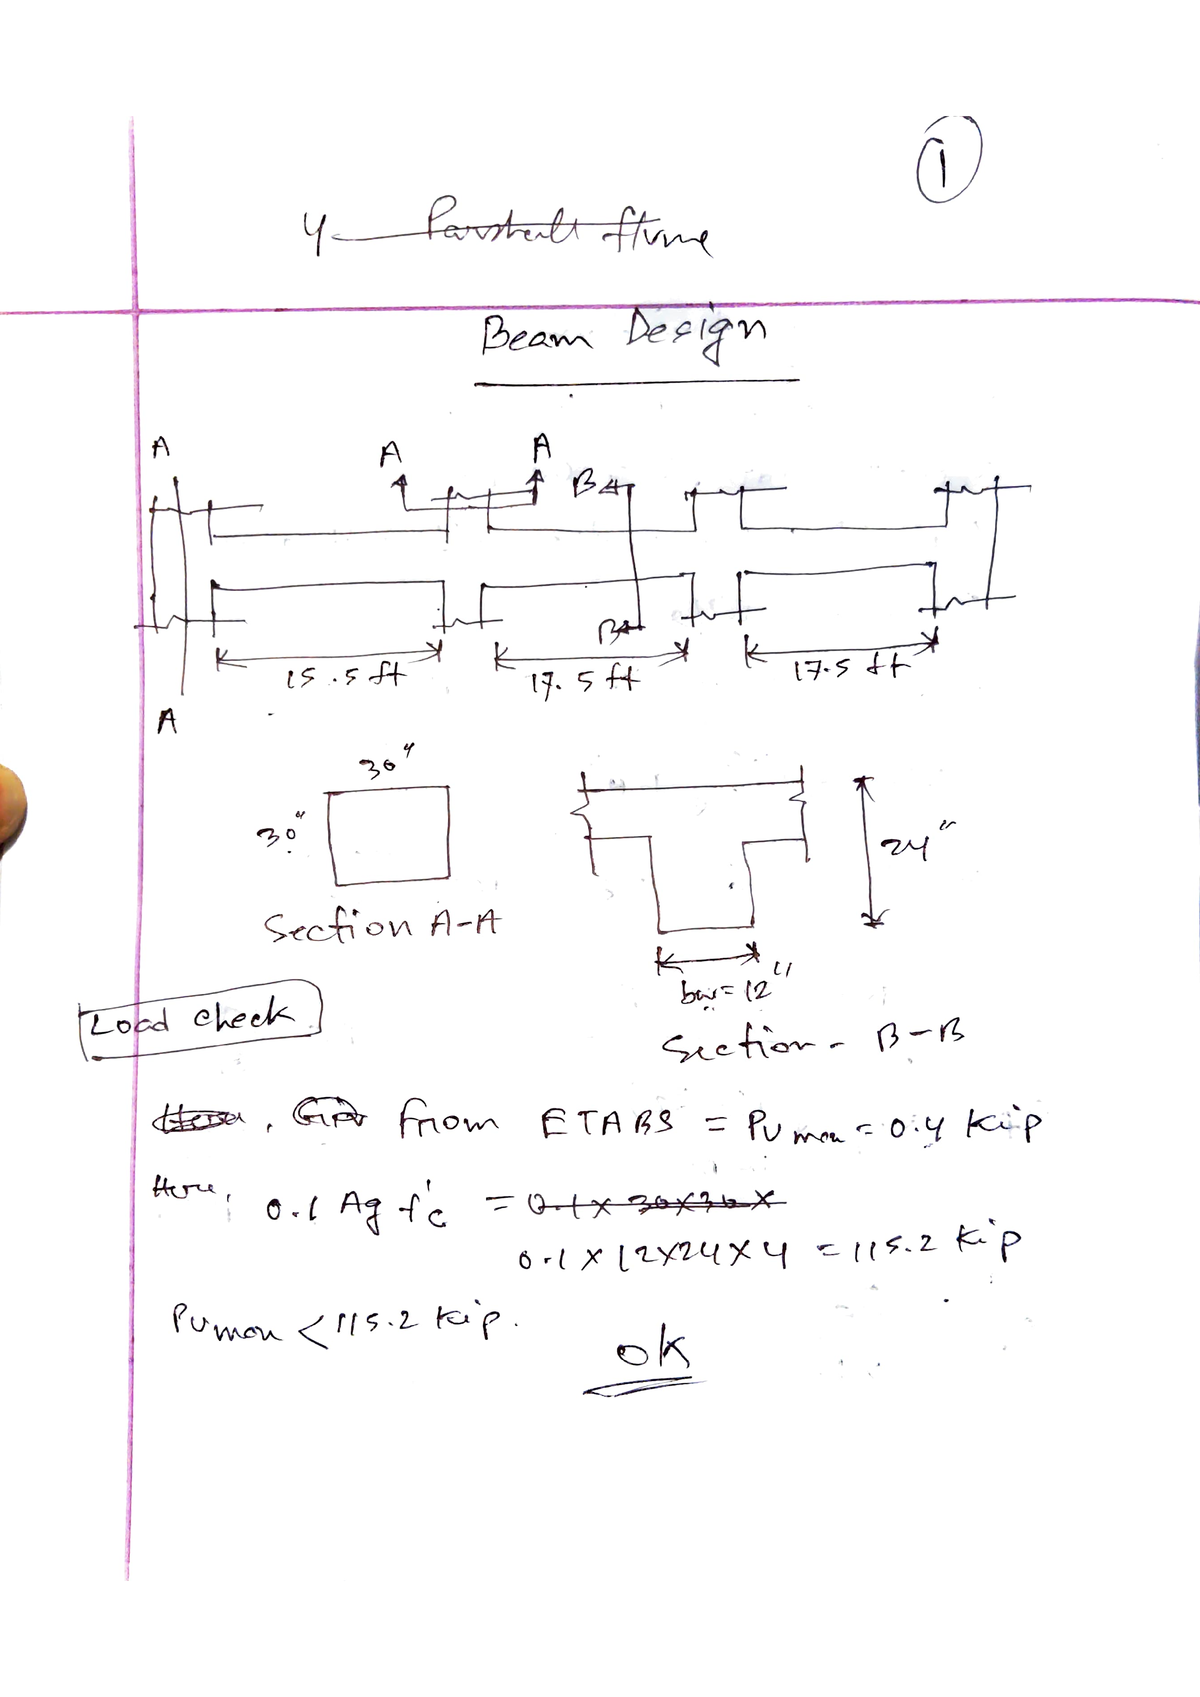 1
4 Parshall flume
Beam Design
A A A B
B
15.5 ft 17.5 ft 17.5 ft
A
30"
30" 24"
Section A-A
bw = 12"
Load check
Section - B-B
from ETABS = Pu max = 0.4 kip
Here, 0.1 Ag f'c = 0.1 x 30x30 x
0.1 x 12x24x4 = 115.2 kip
Pu max < 115.2 kip.
ok